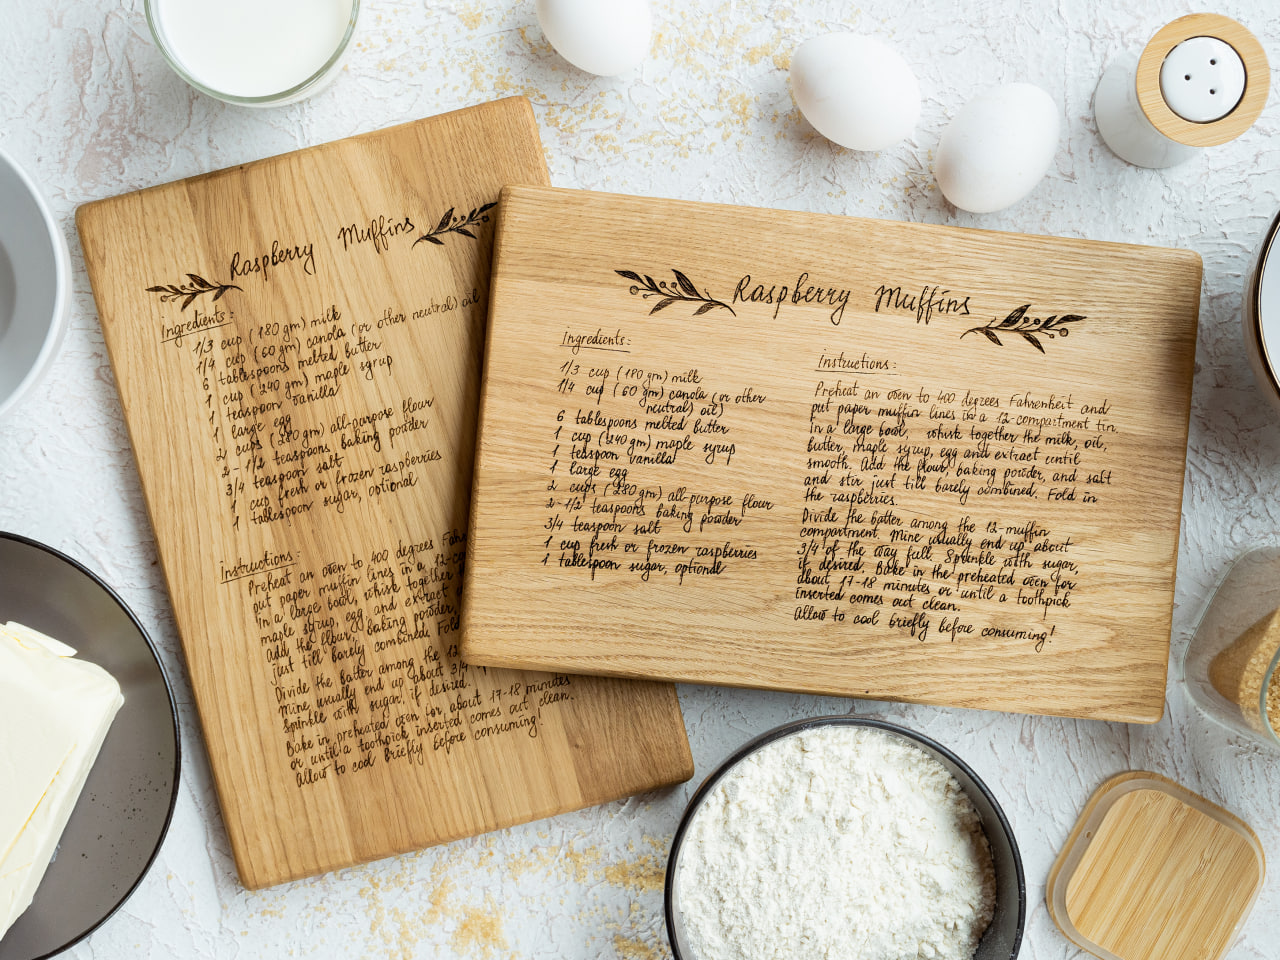 Raspberry Muffins
Ingredients:
1/3 cup (180 gm) milk
1/4 cup (60 gm) canola (or other neutral) oil
6 tablespoons melted butter
1 cup (240 gm) maple syrup
1 teaspoon vanilla
1 large egg
2 cups (280 gm) all-purpose flour
2-1/2 teaspoons baking powder
3/4 teaspoon salt
1 cup fresh or frozen raspberries
1 tablespoon sugar, optional
Instructions:
Preheat an oven to 400 degrees Fah
put paper muffin lines in a 12-co
In a large bowl, whisk together
maple syrup, egg and extract
Add the flour, baking powder,
just till barely combined. Fold
Divide the batter among the 12
Mine usually end up about 3/4
Sprinkle with sugar, if desired.
Bake in preheated oven for about 17-18 minutes
or until a toothpick inserted comes out clean.
Allow to cool briefly before consuming!
Raspberry Muffins
Ingredients:
1/3 cup (180 gm) milk
1/4 cup (60 gm) canola (or other
neutral) oil)
6 tablespoons melted butter
1 cup (240 gm) maple syrup
1 teaspoon vanilla
1 large egg
2 cups (280 gm) all-purpose flour
2-1/2 teaspoons baking powder
3/4 teaspoon salt
1 cup fresh or frozen raspberries
1 tablespoon sugar, optional
Instructions:
Preheat an oven to 400 degrees Fahrenheit and
put paper muffin lines in a 12-compartment tin.
In a large bowl, whisk together the milk, oil,
butter, maple syrup, egg and extract until
smooth. Add the flour, baking powder, and salt
and stir just till barely combined. Fold in
the raspberries.
Divide the batter among the 12-muffin
compartment. Mine usually end up about
3/4 of the way full. Sprinkle with sugar,
if desired. Bake in the preheated oven for
about 17-18 minutes or until a toothpick
inserted comes out clean.
Allow to cool briefly before consuming!